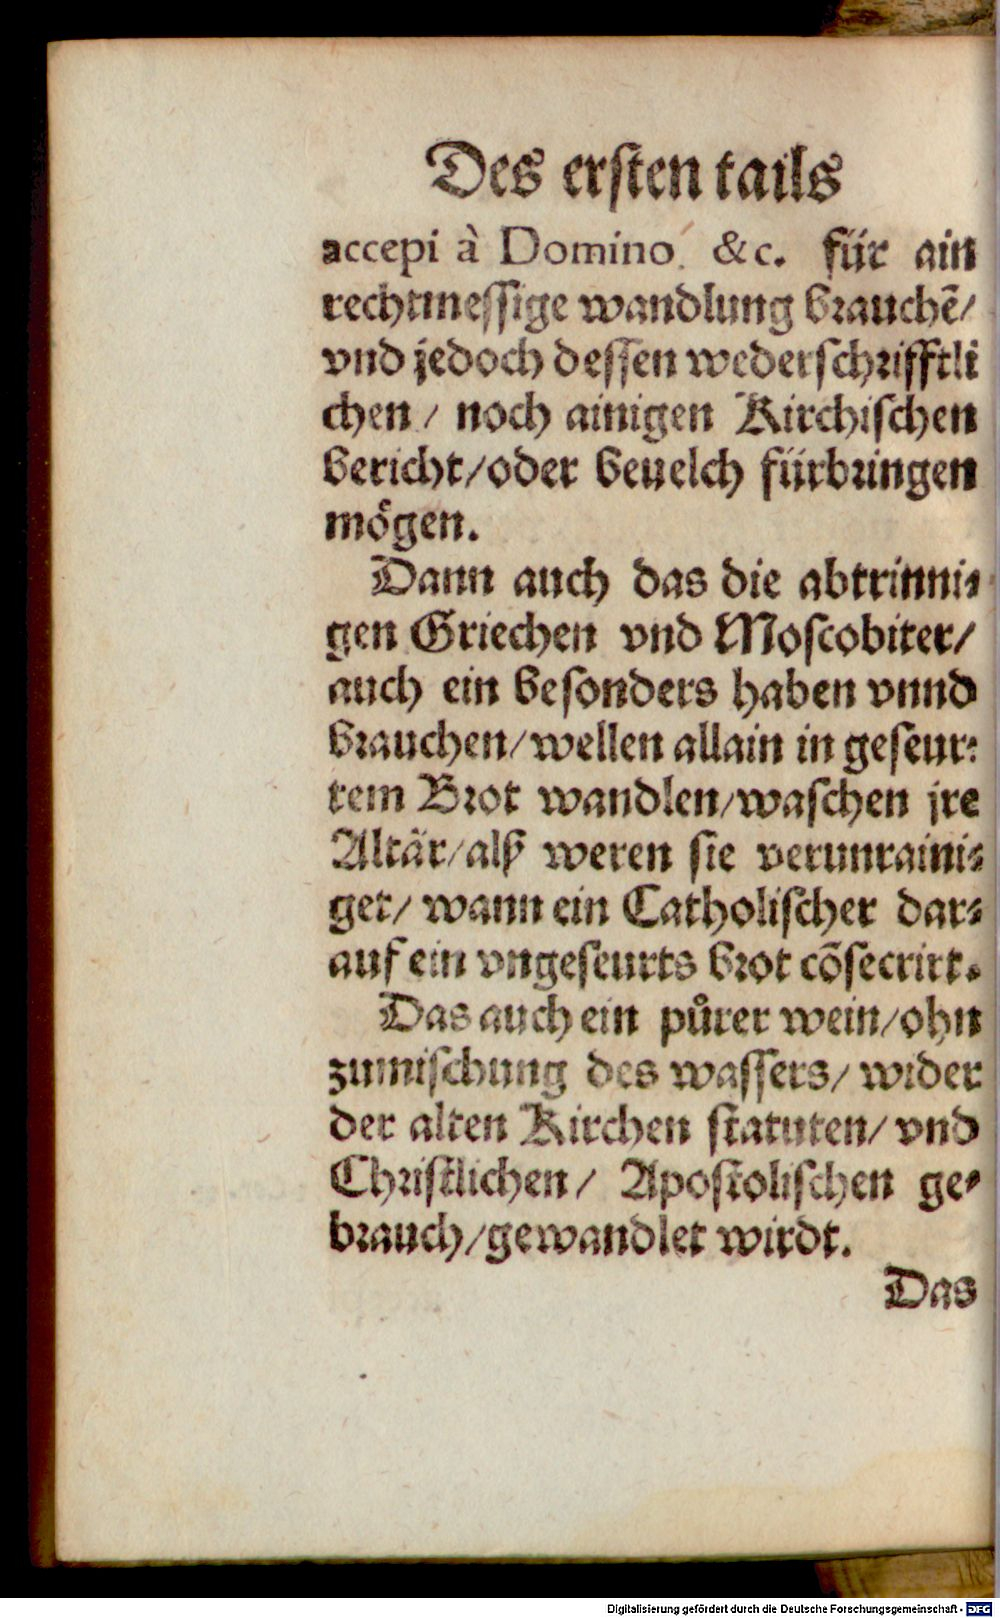 Des ersten tails
accepi à Domino. &c. für ain
rechtmessige wandlung brauchẽ/
vnd jedoch dessen wederschrifftli
chen / noch ainigen Kirchischen
bericht/oder beuelch fürbringen
mögen.
Dann auch das die abtrinni-
gen Griechen vnd Moscobiter/
auch ein besonders haben vnnd
brauchen/wellen allain in geseur-
tem Brot wandlen/waschen jre
Altär/alß weren sie verunraini-
get/ wann ein Catholischer dar-
auf ein vngeseurts brot cõsecrirt.
Das auch ein půrer wein/ohn
zumischung des wassers/ wider
der alten Kirchen statuten/ vnd
Christlichen/ Apostolischen ge-
brauch/gewandlet wirdt.
Das
Digitalisierung gefördert durch die Deutsche Forschungsgemeinschaft - DFG